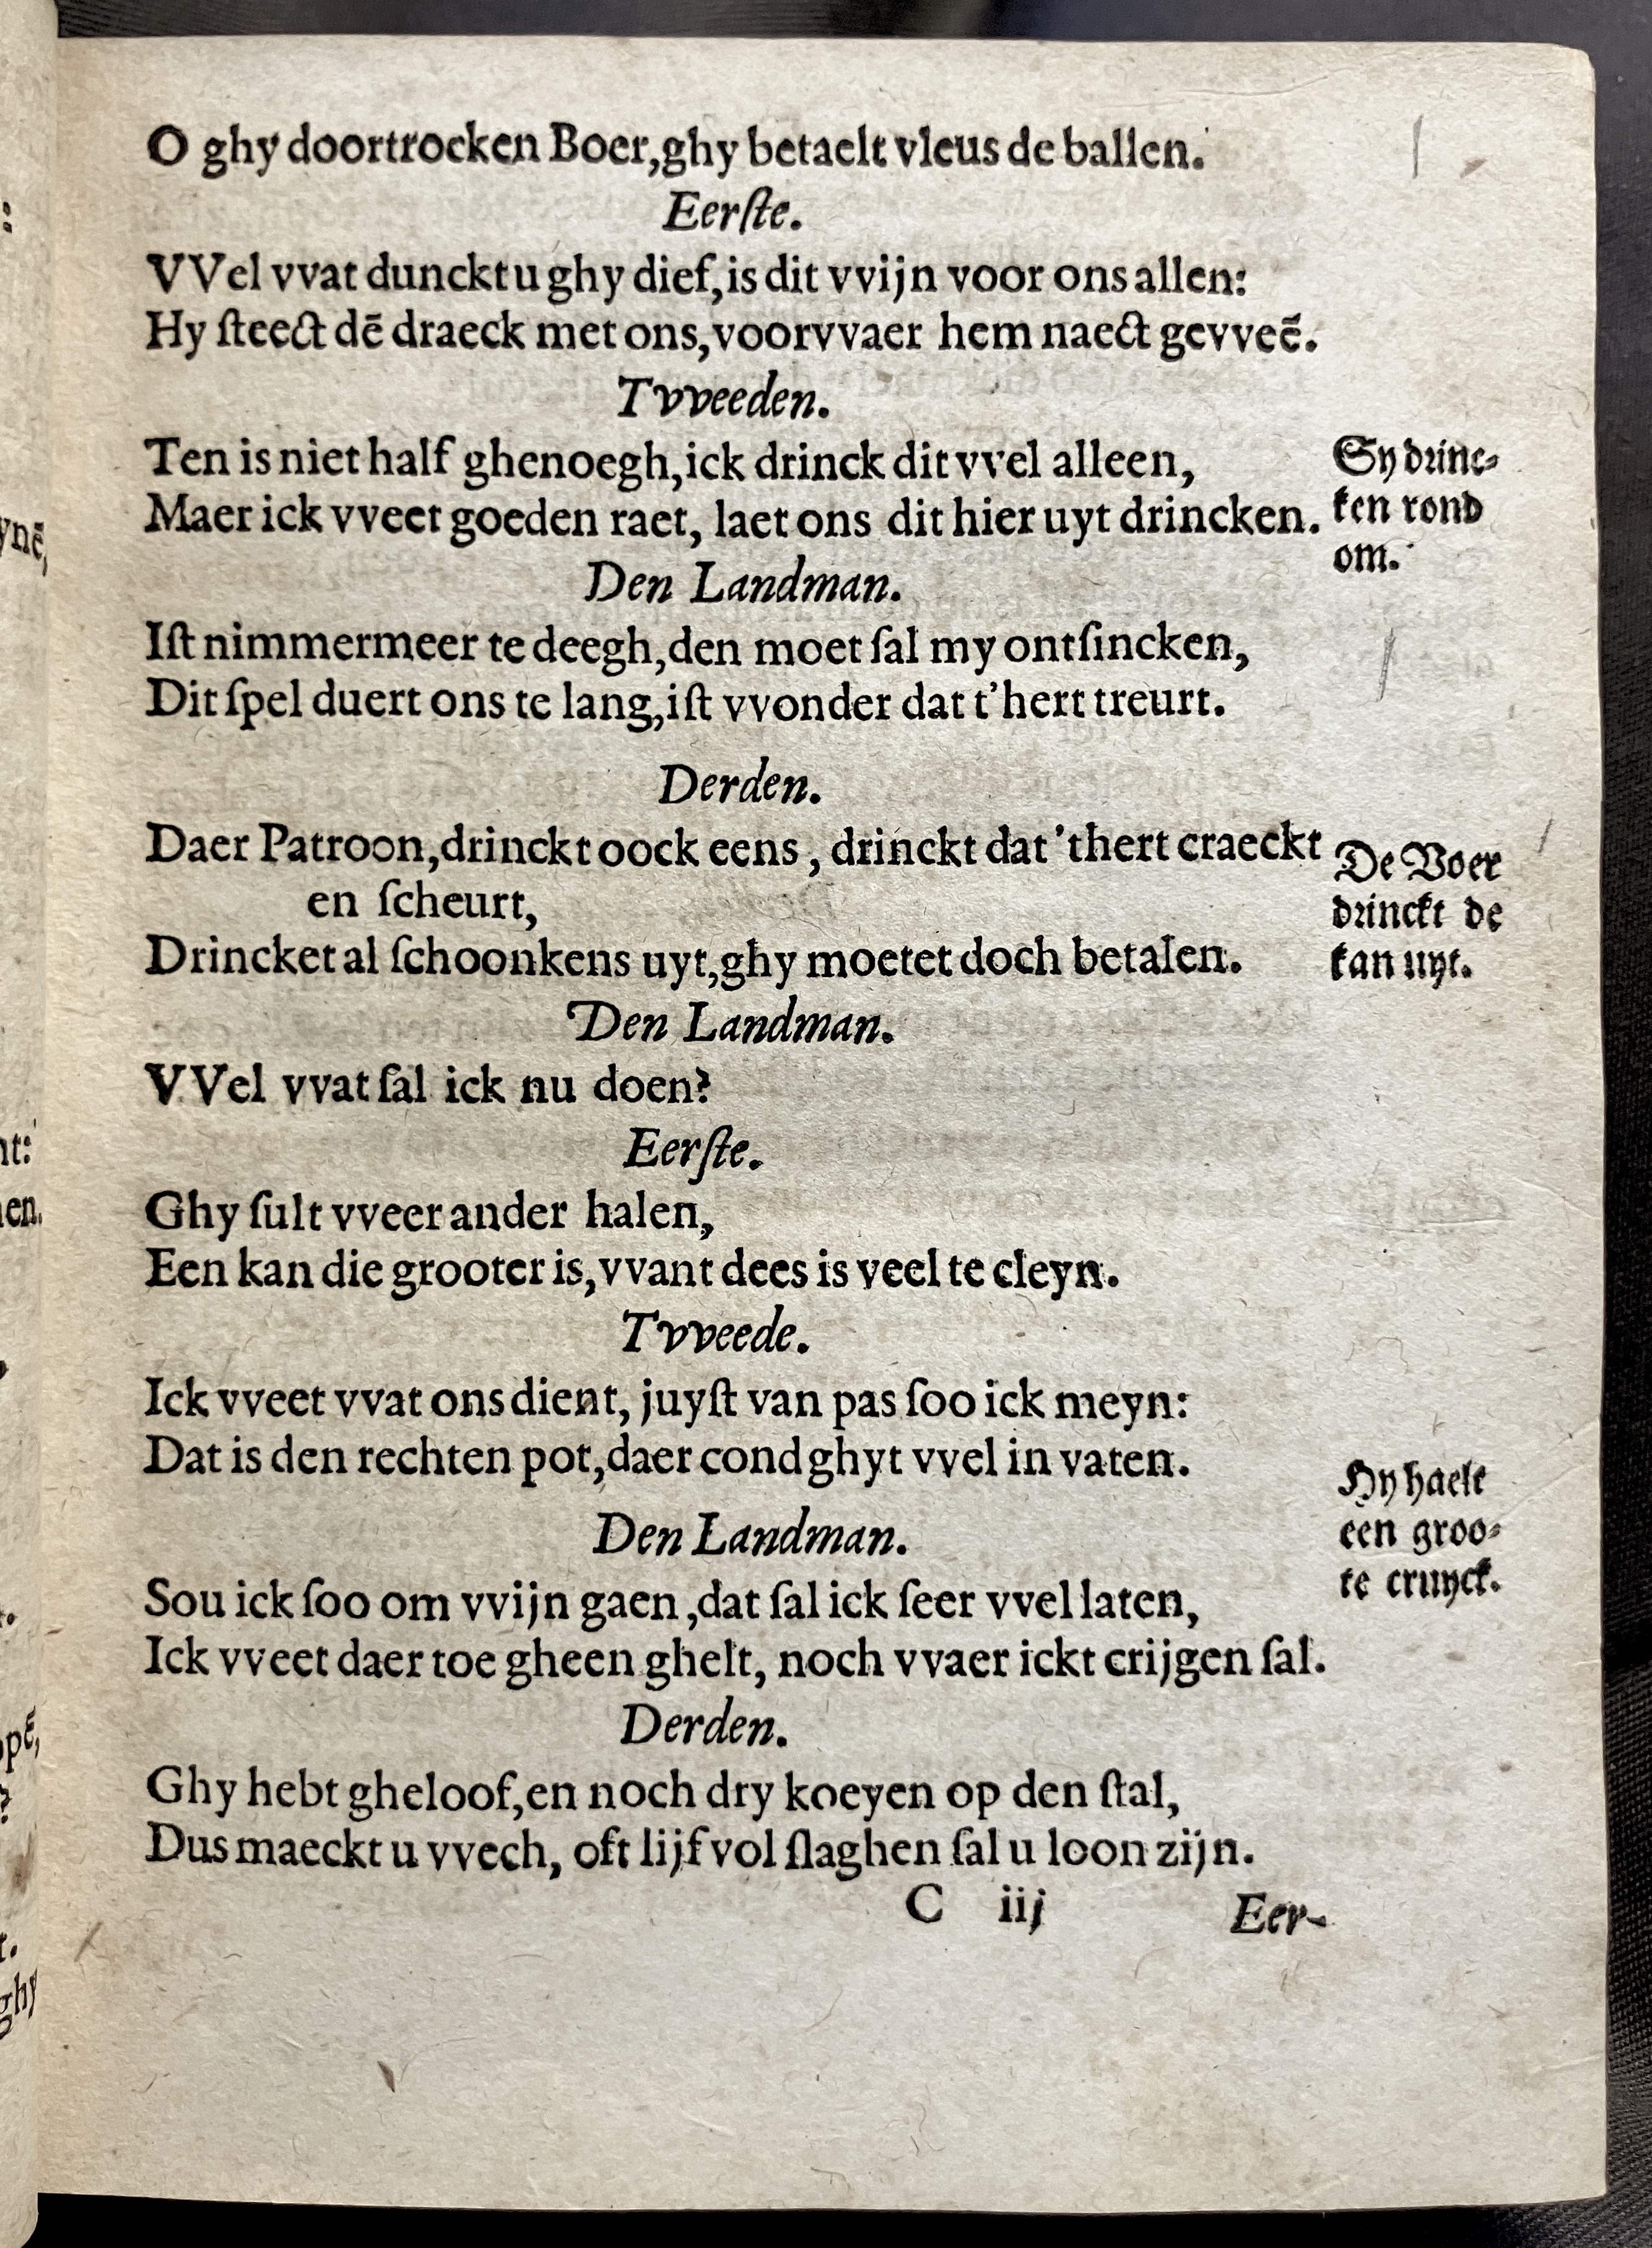 O ghy doortrocken Boer, ghy betaelt vleus de ballen.
Eerſte.
VVel vvat dunckt u ghy dief, is dit vvijn voor ons allen:
Hy ſteect dē draeck met ons, voorvvaer hem naect gevveē.
Tvveeden.
Ten is niet half ghenoegh, ick drinck dit vvel alleen,
Maer ick vveet goeden raet, laet ons dit hier uyt drincken.
Sy drinc⸗
ken rond
om.
Den Landman.
Iſt nimmermeer te deegh, den moet ſal my ontſincken,
Dit ſpel duert ons te lang, iſt vvonder dat t'hert treurt.
Derden.
Daer Patroon, drinckt oock eens, drinckt dat 'thert craeckt
en ſcheurt,
Drincket al ſchoonkens uyt, ghy moetet doch betalen.
De Boer
drinckt de
kan uyt.
Den Landman.
VVel vvat ſal ick nu doen?
Eerſte.
Ghy ſult vveer ander halen,
Een kan die grooter is, vvant dees is veel te cleyn.
Tvveede.
Ick vveet vvat ons dient, juyſt van pas ſoo ick meyn:
Dat is den rechten pot, daer cond ghyt vvel in vaten.
Hy haelt
een groo⸗
te cruyck.
Den Landman.
Sou ick ſoo om vvijn gaen, dat ſal ick ſeer vvel laten,
Ick vveet daer toe gheen ghelt, noch vvaer ickt crijgen ſal.
Derden.
Ghy hebt gheloof, en noch dry koeyen op den ſtal,
Dus maeckt u vvech, oft lijf vol ſlaghen ſal u loon zijn.
C iij
Eer-